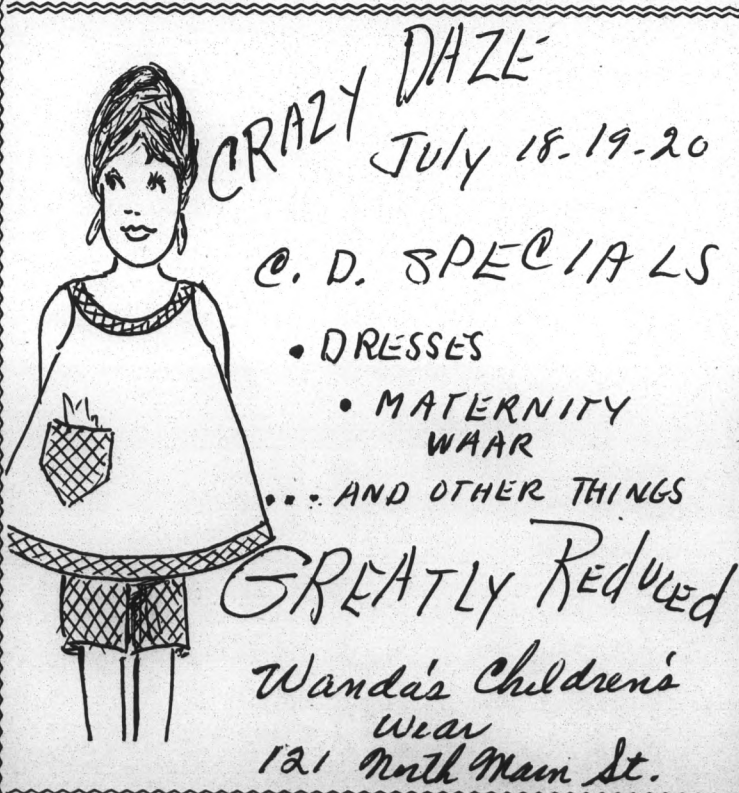 CRAZY DAZE
July 18-19-20
C. D. SPECIALS
• DRESSES
• MATERNITY
WAAR
... AND OTHER THINGS
GREATLY REDUCED
Wanda's Children's
Wear
121 North Main St.